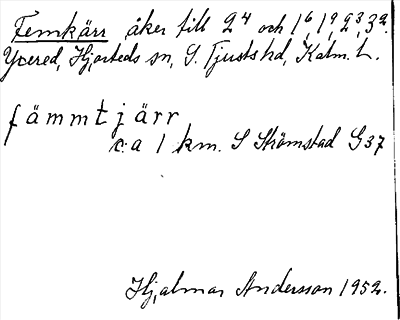 Femkärr åker till 2⁴ och 1⁶, 1⁹, 2³, 3².
Yxered, Hjorteds sn, S. Tjusts hd, Kalm. L.
fämmtjärr
c:a 1 km. S Strömstad G37
Hjalmar Andersson 1952.